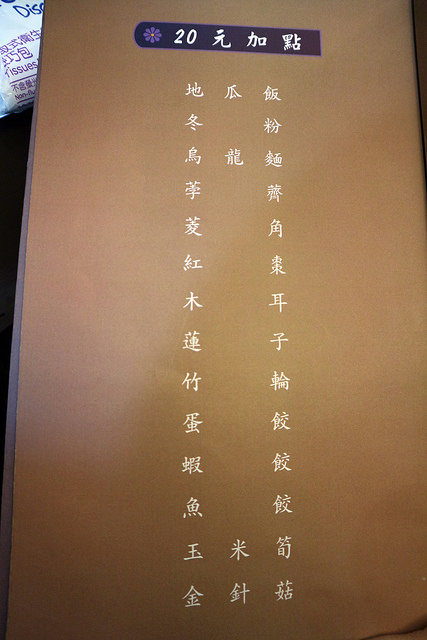 20元加點
地瓜飯
冬粉
烏龍麵
荸薺
菱角
紅棗
木耳
蓮子
竹輪
蛋餃
蝦餃
魚餃
玉米筍
金針菇
Disc
式衛生
巧包
Tissues
不含螢